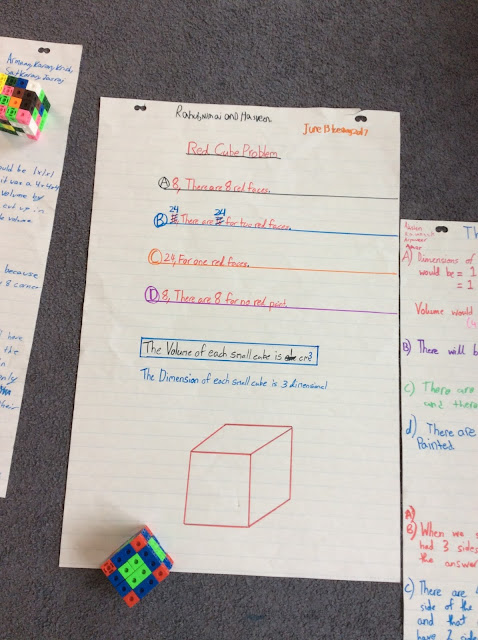 Armaan, Karan, Krish,
ould be 1x1x1
it was a 4x4x4
volume for
cut up in
volume
because
8 corner
ll have
the
in
only
their
and Hasveen.
June 13
Red Cube Problem
A 8, There are 8 red faces.
24 24
B There are for two red faces.
C 24, For one red faces.
D 8, There are 8 for no red paint.
The Volume of each small cube is cm3
The Dimension of each small cube is 3 dimensional
Th
A) Dimensions of
would be = 1
= 1
Volume would
B) There will b
C) There are
and there
d) There are
Painted.
A)
B) When we s
had 3 sides
the answer
C) There are 4
side of the
and that
have 2 side